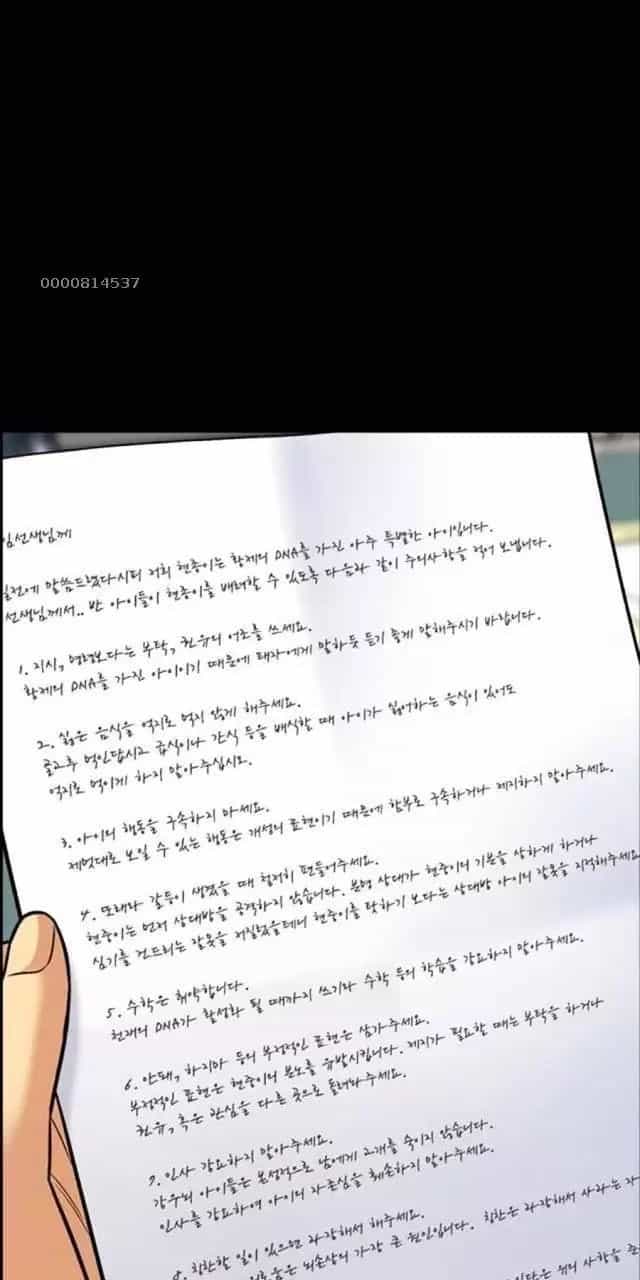 0000814537
임선생님께
일전에 말씀드렸다시피 저희 현중이는 황제의 DNA를 가진 아주 특별한 아이입니다.
선생님께서.. 반 아이들이 현중이를 배려할 수 있도록 다음과 같이 주의사항을 적어 보냅니다.
1. 지시, 명령보다는 부탁, 권유의 어조를 쓰세요.
황제의 DNA를 가진 아이이기 때문에 태자에게 말하듯 듣기 좋게 말해주시기 바랍니다.
2. 싫은 음식을 억지로 먹지 않게 해주세요.
골고루 먹인답시고 급식이나 간식 등을 배식할 때 아이가 싫어하는 음식이 있어도
억지로 먹이게 하지 말아주십시오.
3. 아이의 행동을 구속하지 마세요.
제멋대로 보일 수 있는 행동은 개성의 표현이기 때문에 함부로 구속하거나 제지하지 말아주세요.
4. 또래와 갈등이 생겼을 때 철저히 편들어주세요.
현중이는 먼저 상대방을 공격하지 않습니다. 분명 상대가 현중이의 기분을 상하게 하거나
심기를 건드리는 잘못을 저질렀을테니 현중이를 탓하기 보다는 상대방 아이의 잘못을 지적해주세요
5. 수학은 취약합니다.
천재의 DNA가 활성화 될 때까지 쓰기와 수학 등의 학습을 강요하지 말아주세요.
6. 안돼, 하지마 등의 부정적인 표현은 삼가주세요.
부정적인 표현은 현중이의 분노를 유발시킵니다. 제지가 필요할 때는 부탁을 하거나
권유, 혹은 관심을 다른 곳으로 돌려봐주세요.
7. 인사 강요하지 말아주세요.
강우뇌 아이들은 본성적으로 남에게 고개를 숙이지 않습니다.
인사를 강요하여 아이의 자존심을 훼손하지 말아주세요.
8. 칭찬할 일이 있으면 과장해서 해주세요.
뇌손상의 가장 큰 원인입니다. 칭찬은 과장해서 사과는 자
위의 사항을 준